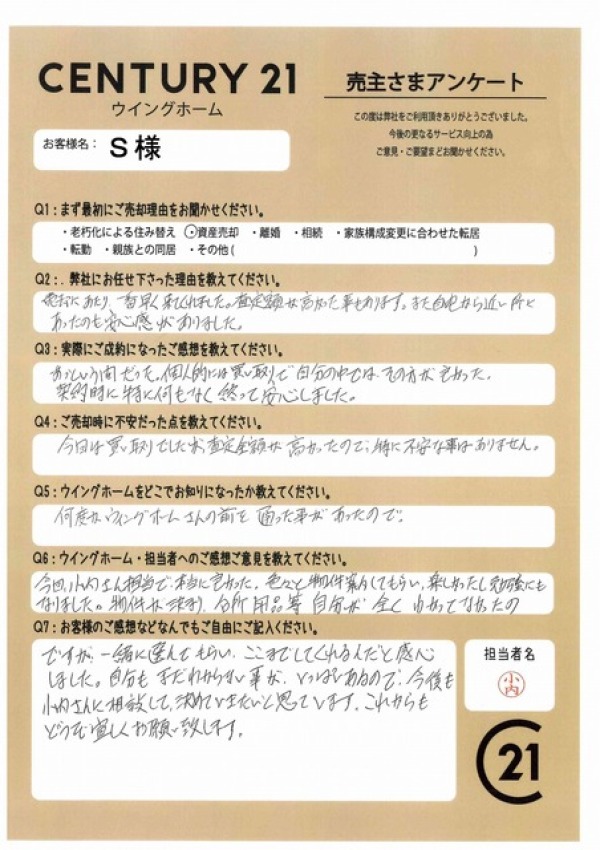 CENTURY 21
ウイングホーム
売主さまアンケート
この度は弊社をご利用頂きありがとうございました。
今後の更なるサービス向上の為
ご意見・ご要望をどお聞かせください。
お客様名: S様
Q1:まず最初にご売却理由をお聞かせください。
・老朽化による住み替え ・資産売却 ・離婚 ・相続 ・家族構成変更に合わせた転居
・転勤 ・親族との同居 ・その他( )
Q2:. 弊社にお任せ下さった理由を教えてください。
売却にあたり、一番早く来てくれました。査定額が高かった事もあります。また自宅から近い所に
あったのも安心感がありました。
Q3:実際にご成約になったご感想を教えてください。
あっという間だった。個人的には買い取りで自分の中では、その方が良かった。
契約時に特に何もなく終って安心しました。
Q4:ご売却時に不安だった点を教えてください。
今回は買い取りでしたが、査定金額が高かったので、特に不安な事はありません。
Q5:ウイングホームをどこでお知りになったか教えてください。
何度かウイングホームさんの前を通った事があったので。
Q6:ウイングホーム・担当者へのご感想ご意見を教えてください。
今回、小内さん担当で、本当に良かった。色々と物件案内してもらい、楽しかったし、勉強にも
なりました。物件が決まり、台所用品等自分が全くわかってなかたの
Q7:お客様のご感想などなんでもご自由にご記入ください。
ですが、一緒に選んでもらい、ここまでしてくれるんだと感心
しました。自分もまだわからない事が、いっぱいあるので、今後も
小内さんに相談して、決めていきたいと思っています。これからも
どうぞ宜しくお願い致します。
担当者名
小内
C21